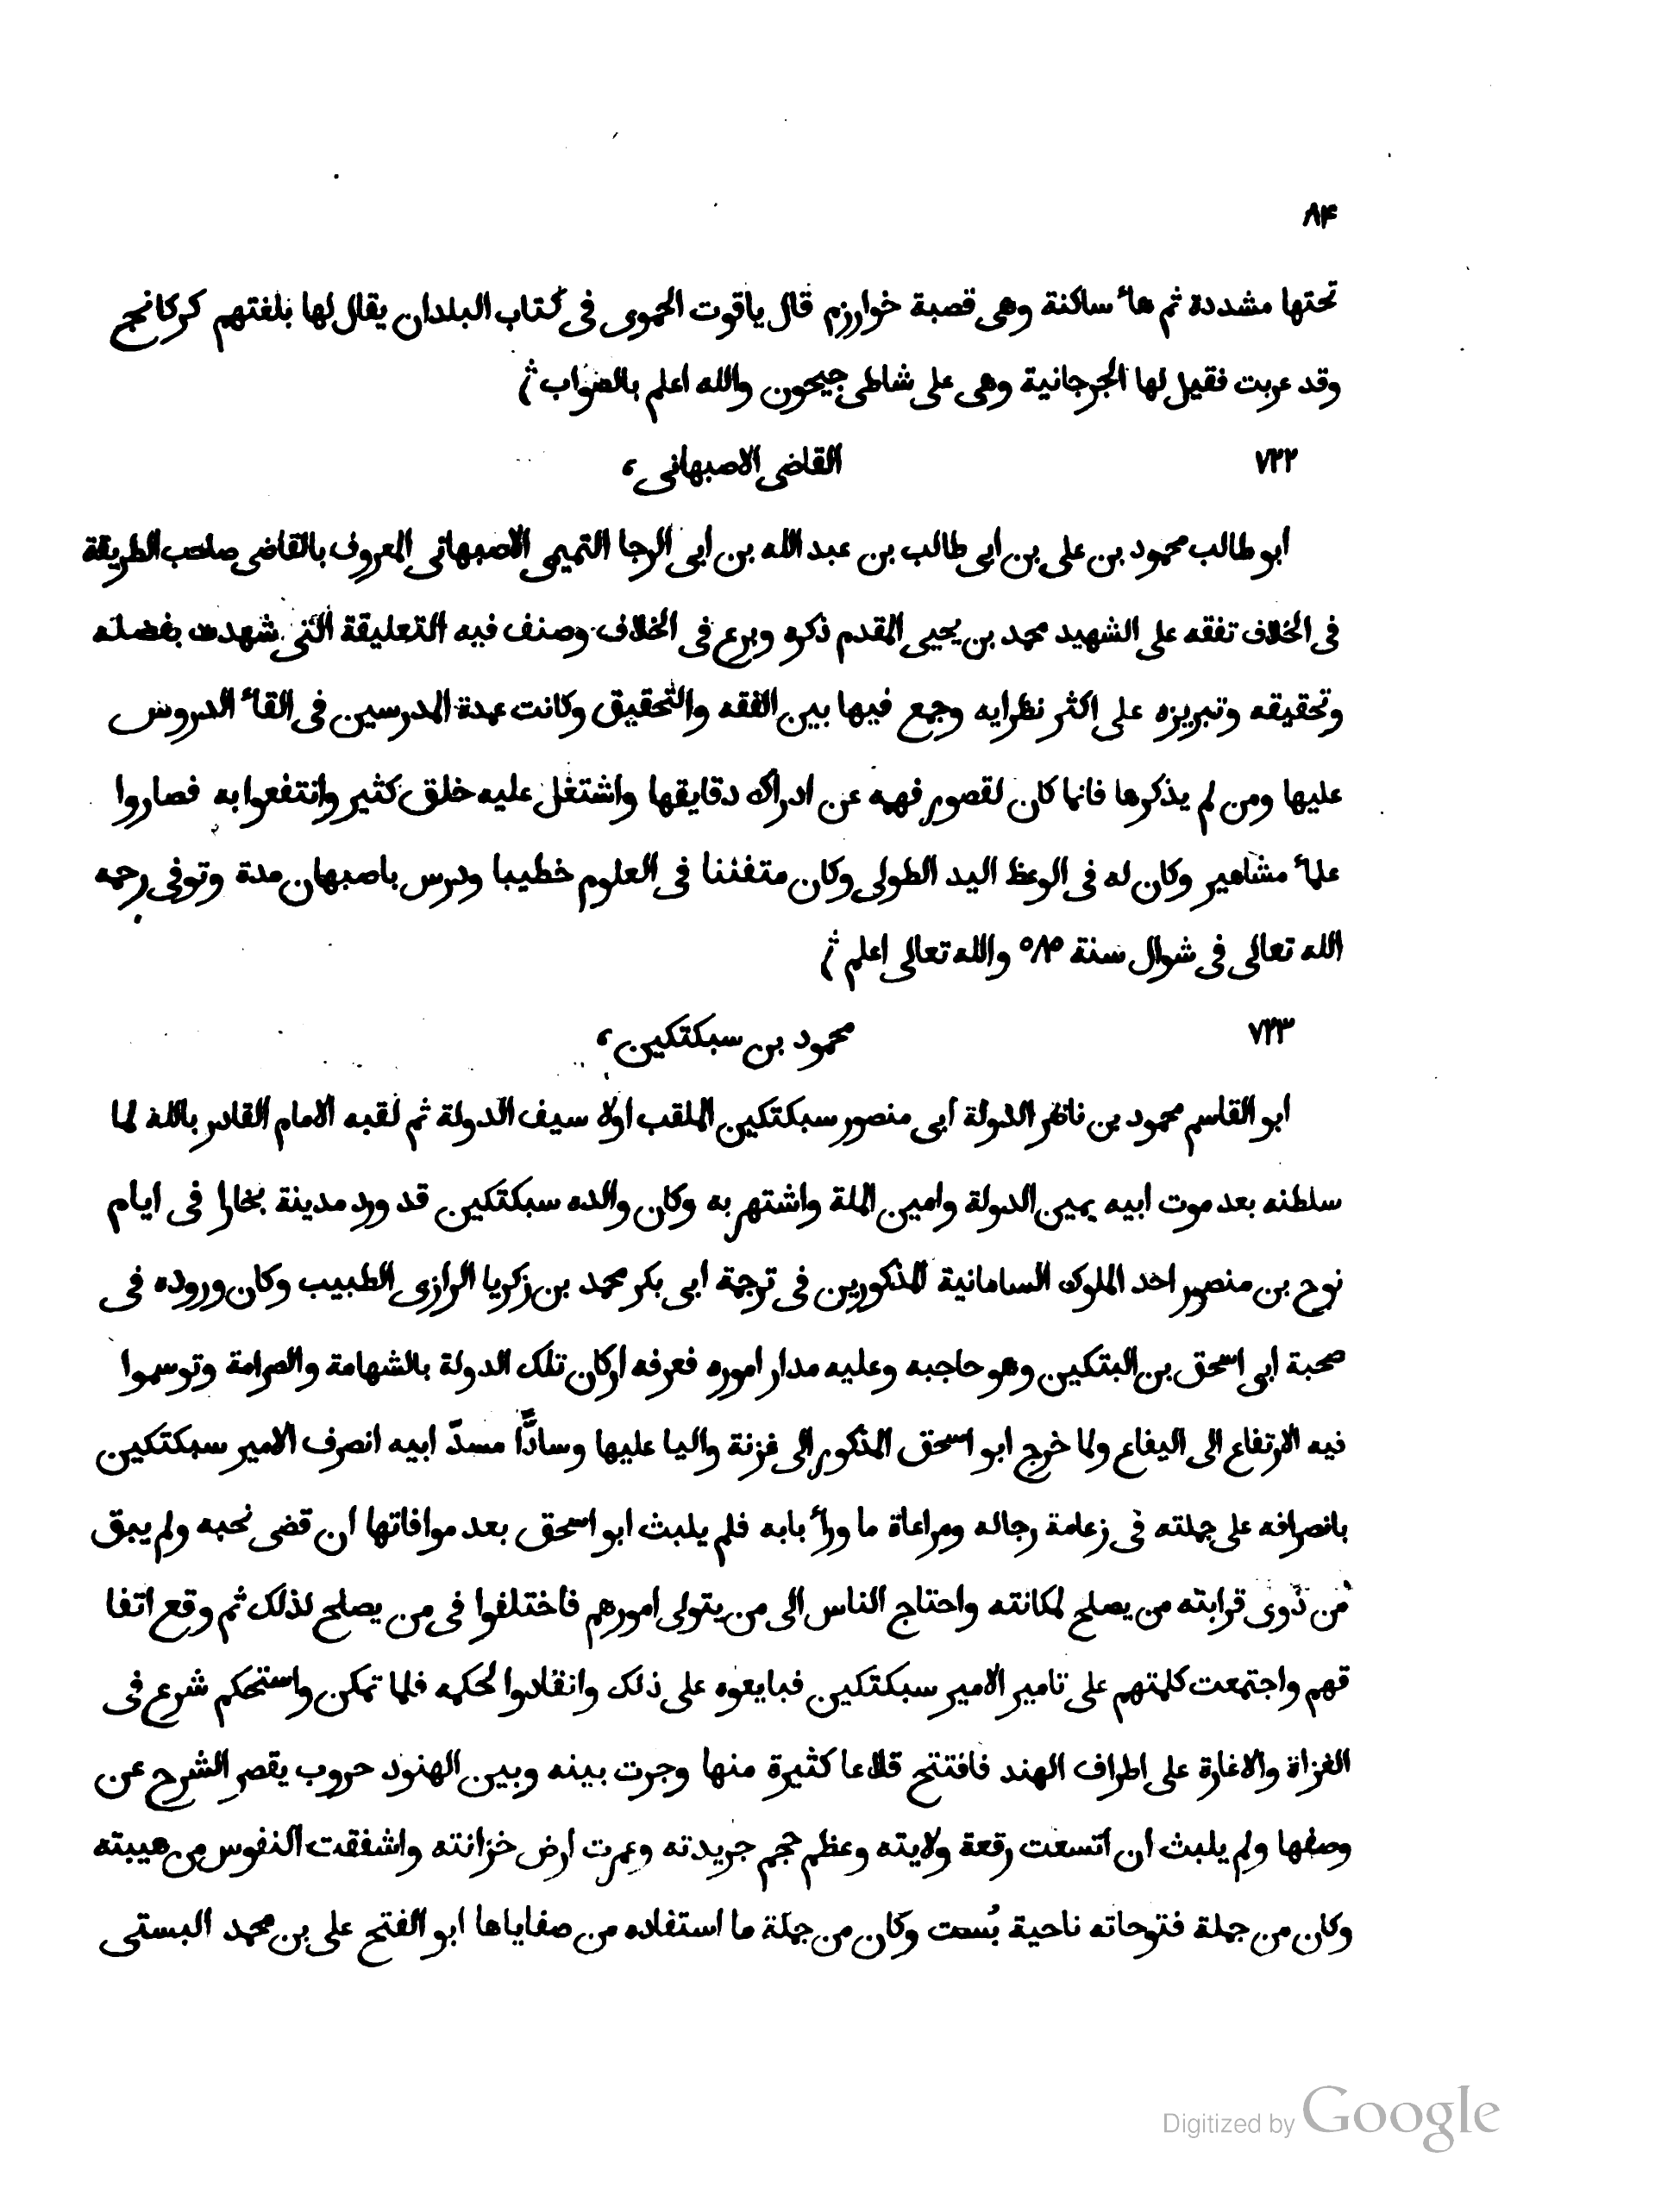 ٨۴
تحتها مشددة ثم هاء ساكنة وهى قصبة خوارزم قال ياقوت الحموى فى كتاب البلدان يقال لها بلغتهم كركانج
وقد عربت فقيل لها الجرجانية وهى على شاطى جيحون والله اعلم بالصواب ۞
٧٢٢ القاضى الاصبهانى،
ابو طالب محمود بن على بن ابى طالب بن عبد الله بن ابى الرجا التميمى الاصبهانى المعروف بالقاضى صاحب الطريقة
فى الخلاف تفقه على الشهيد محمد بن يحيى المقدم ذكره وبرع فى الخلاف وصنف فيه التعليقة التى شهدت بفضله
وتحقيقه وتبريزه على اكثر نظرايه وجمع فيها بين الفقه والتحقيق وكانت عمدة المدرسين فى القاء الدروس
عليها ومن لم يذكرها فانما كان لقصور فهمه عن ادراك دقايقها واشتغل عليه خلق كثير وانتفعوا به فصاروا
علماء مشاهير وكان له فى الوعظ اليد الطولى وكان متفننا فى العلوم خطيبا ودرس باصبهان مدة وتوفى رحمه
الله تعالى فى شوال سنة ٥٨٥ والله تعالى اعلم ۞
٧٢٣ محمود بن سبكتكين،
ابو القاسم محمود بن ناصر الدولة ابى منصور سبكتكين الملقب اولا سيف الدولة ثم لقبه الامام القادر بالله لما
سلطنه بعد موت ابيه يمين الدولة وامين الملة واشتهر به وكان والده سبكتكين قد ورد مدينة بخارا فى ايام
نوح بن منصور احد الملوك السامانية المذكورين فى ترجمة ابى بكر محمد بن زكريا الرازى الطبيب وكان وروده فى
صحبة ابى اسحق بن البتكين وهو حاجبه وعليه مدار اموره فعرفه اركان تلك الدولة بالشهامة والصرامة وتوسموا
فيه الارتفاع الى اليفاع ولما خرج ابو اسحق المذكور الى غزنة واليا عليها وسادًّا مسدّ ابيه انصرف الامير سبكتكين
بانصرافه على جملته فى زعامة رجاله ومراعاة ما وراء بابه فلم يلبث ابو اسحق بعد موافاتها ان قضى نحبه ولم يبق
من ذوى قرابته من يصلح لمكانته واحتاج الناس الى من يتولى امورهم فاختلفوا فى من يصلح لذلك ثم وقع اتفا
قهم واجتمعت كلمتهم على تامير الامير سبكتكين فبايعوه على ذلك وانقادوا لحكمه فلما تمكن واستحكم شرع فى
الغزاة والاغارة على اطراف الهند فافتتح قلاعا كثيرة منها وجرت بينه وبين الهنود حروب يقصر الشرح عن
وصفها ولم يلبث ان اتسعت رقعة ولايته وعظم حجم جريدته وعمرت ارض خزانته واشفقت النفوس من هيبته
وكان من جملة فتوحاته ناحية بُست وكان من جملة ما استفاده من صفاياها ابو الفتح على بن محمد البستى
Digitized by Google